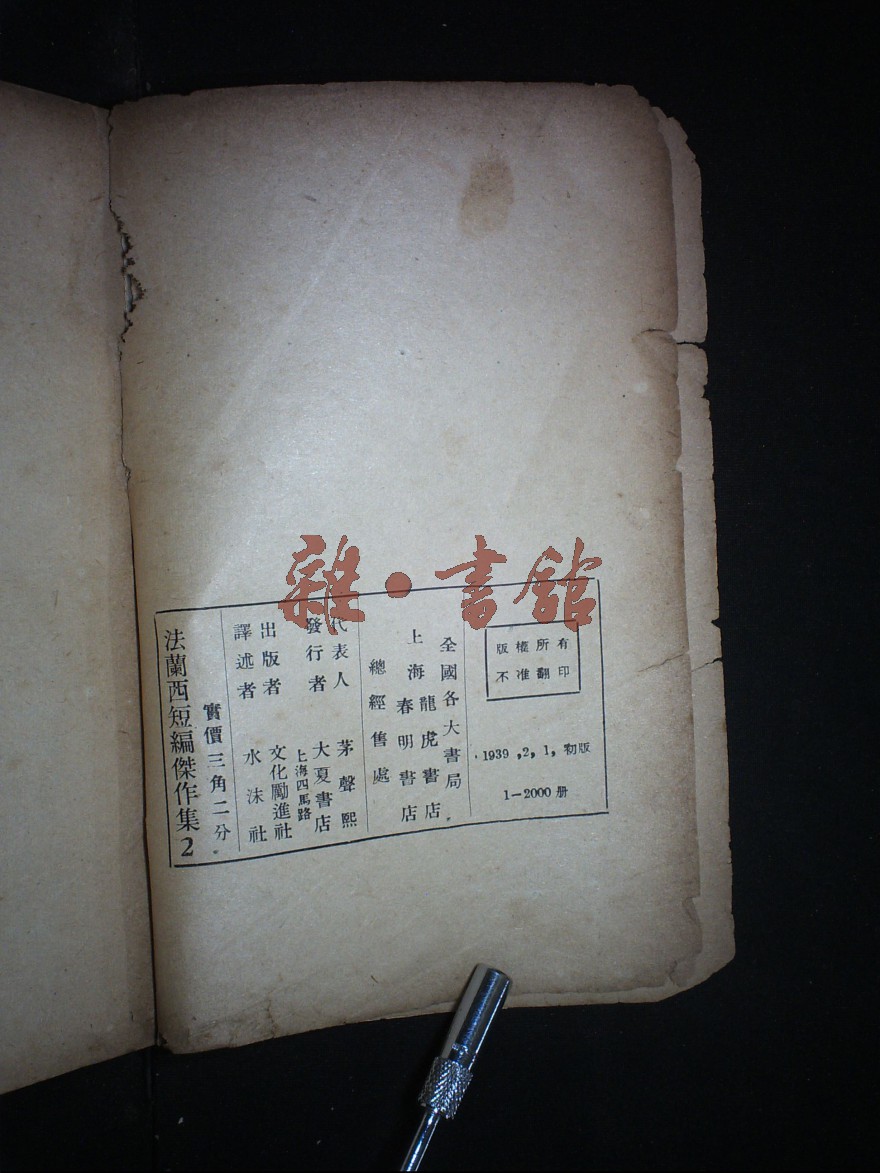 雜·書館
版權所有
不准翻印
1939,2,1,初版
1—2000册
全國各大書局
上海龍虎書店
上海春明書店
總經售處
代表人 茅聲熙
發行者 大夏書店
上海四馬路
出版者 文化勵進社
譯述者 水沫社
實價三角二分
法蘭西短編傑作集2